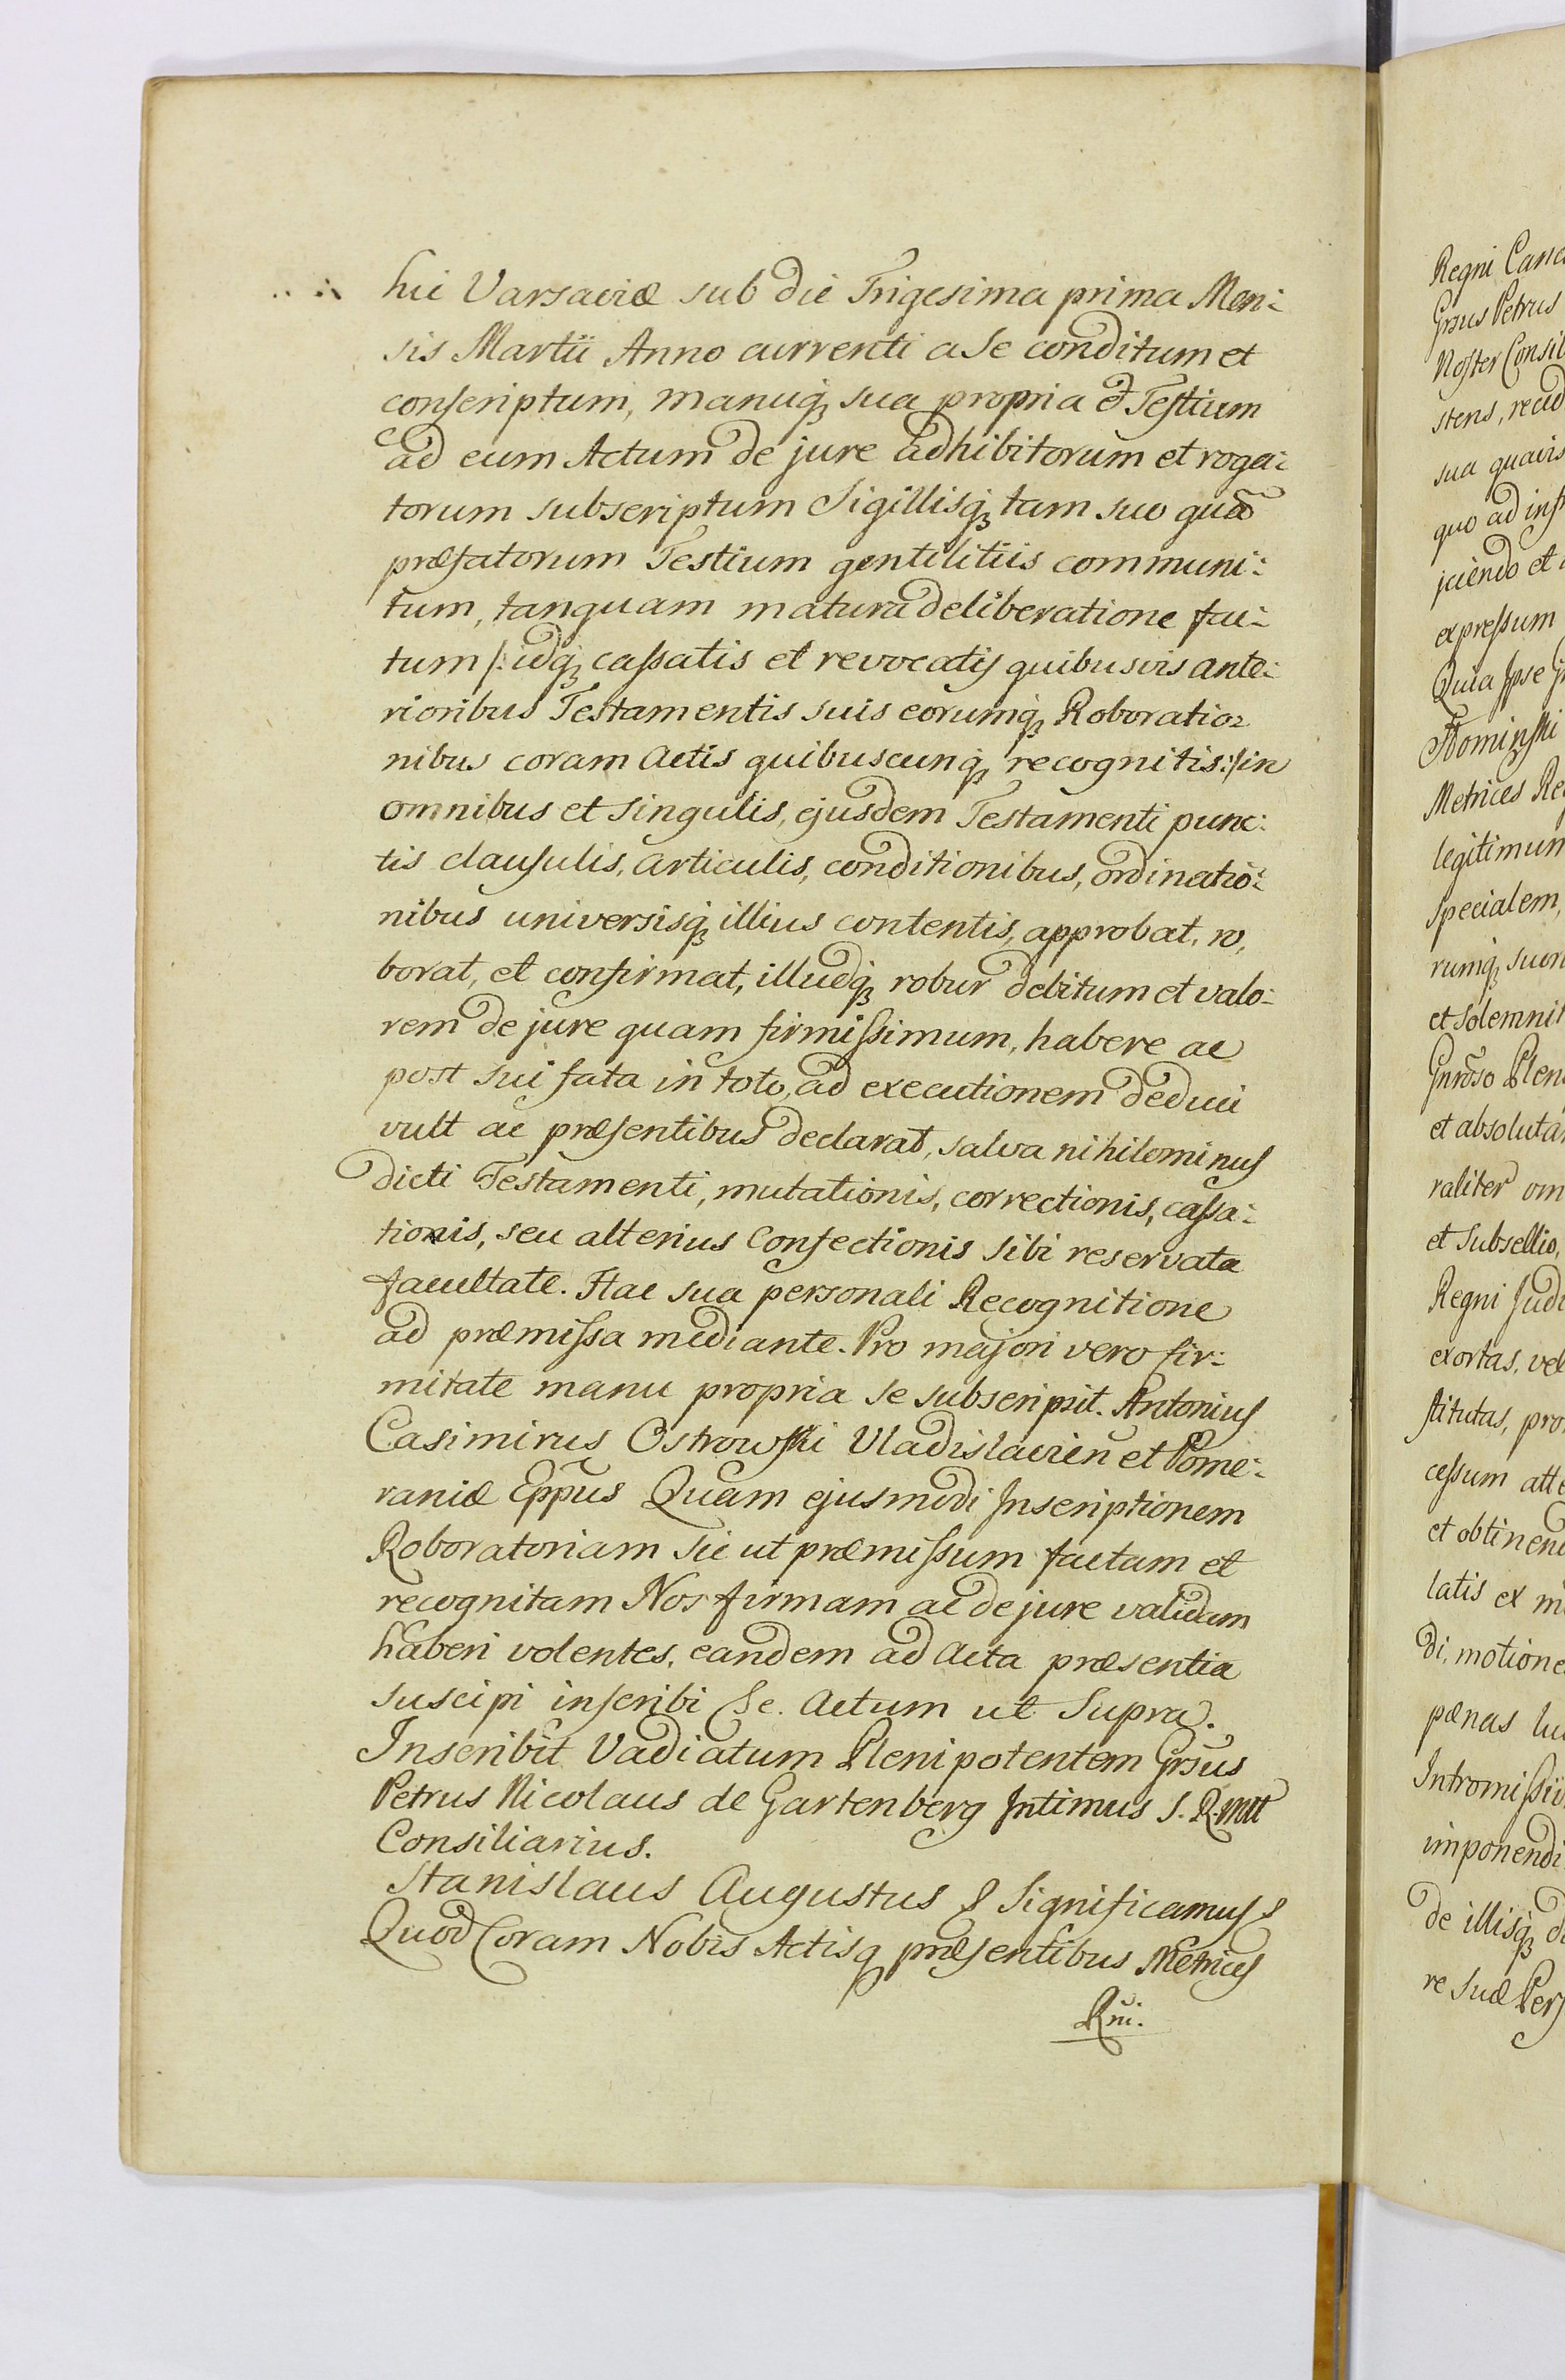 hic Varsaviæ sub die Trigesima prima Men:
sis Martii Anno currenti a Se conditum et
conscriptum, manuq; sua propria & Testium
ad eum Actum de jure adhibitorum et roga:
torum subscriptum Sigillisq; tam suo quā
præfatorum Testium gentilitiis communi:
tum, tanquam matura deliberatione fac:
tum /: idq; cassatis et revocatis quibusvis ante:
rioribus Testamentis suis eorumq; Roboratio:
nibus coram Actis quibuscunq; recognitis :/ in
omnibus et singulis, ejusdem Testamenti punc:
tis clausulis, articulis, conditionibus, ordinatio:
nibus universisq; illius contentis, approbat, ro,
borat, et confirmat, illudq; robur debitum et valo:
rem de jure quam firmissimum, habere ac
post sui fata in toto, ad executionem deduci
vult ac præsentibus declarat, salva nihilominus
dicti Testamenti, mutationis, correctionis, cassa:
tionis, seu alterius Confectionis sibi reservata
facultate. Hac sua personali Recognitione
ad præmissa mediante. Pro majori vero fir:
mitate manu propria se subscripsit. Antonius
Casimirus Ostrowski Vladislavien̄ et Pome:
raniæ Epp̄us Quam ejusmodi Inscriptionem
Roboratoriam sic ut præmissum factam et
recognitam Nos firmam ac de jure validam
haberi volentes, eandem ad Acta præsentia
suscipi inscribi &c. Actum ut Supra.
Inscribit Vadiatum Plenipotentem Grs̄us
Petrus Nicolaus de Gartenberg Intimus S. R. Mtt
Consiliarius.
Stanislaus Augustus & Significamus &
Quod Coram Nobis Actisq præsentibus Metrices
Rni.
Regni Canc
Grsus Petrus
Noster Consil
stens, recid
sua quavis
quo ad inf
jciendo et
expressum
Quia Ipse G
Metrices Re
legitimum
specialem,
rumq; suum
et Solemnit
Gnroso Plen
et absoluta
raliter om
et Subsellio,
Regni Judi
exortas, vel
stitutas, pro
cessum att
et obtinend
latis ex m
di, motione
pænas lu
Intromissio
imponendi
de illisq; d
re suæ Pers